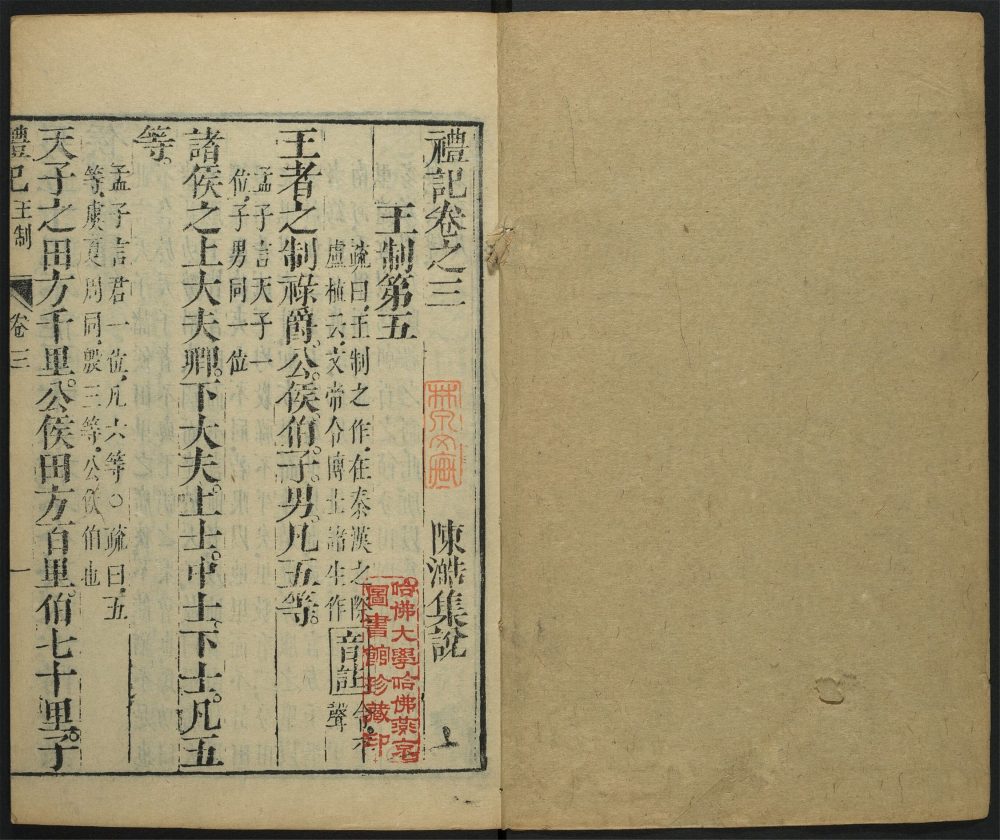 禮記卷之三
陳澔集說
王制第五
疏曰王制之作在秦漢之際
盧植云文帝令博士諸生作
音註
令平
聲
王者之制祿爵公侯伯子男凡五等
孟子言天子一
位子男同一位
諸侯之上大夫卿下大夫上士中士下士凡五
等
孟子言君一位凡六等○疏曰五
等虞夏周同殷三等公侯伯也
天子之田方千里公侯田方百里伯七十里子
禮記
王制
卷三
一
哈佛大學哈佛燕京
圖書館珍藏印